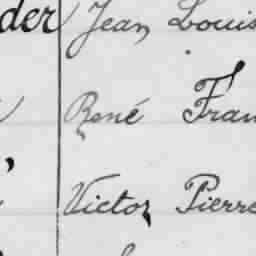 der Jean Louis
René Fran
Victor Pierre